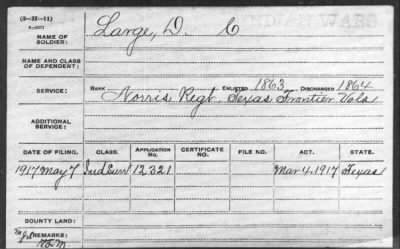 (3-H-11)
INDIAN WARS
NAME OF SOLDIER: Large, D. C
NAME AND CLASS OF DEPENDENT:
SERVICE: RANK ENLISTED 1863 DISCHARGED 1864
Norris Regt. Texas Frontier Vols
ADDITIONAL SERVICE:
DATE OF FILING. CLASS. APPLICATION NO. CERTIFICATE NO. FILE NO. ACT. STATE.
1917 May 7 Ind Surv 12321 Mar 4, 1917 Texas
BOUNTY LAND:
REMARKS: